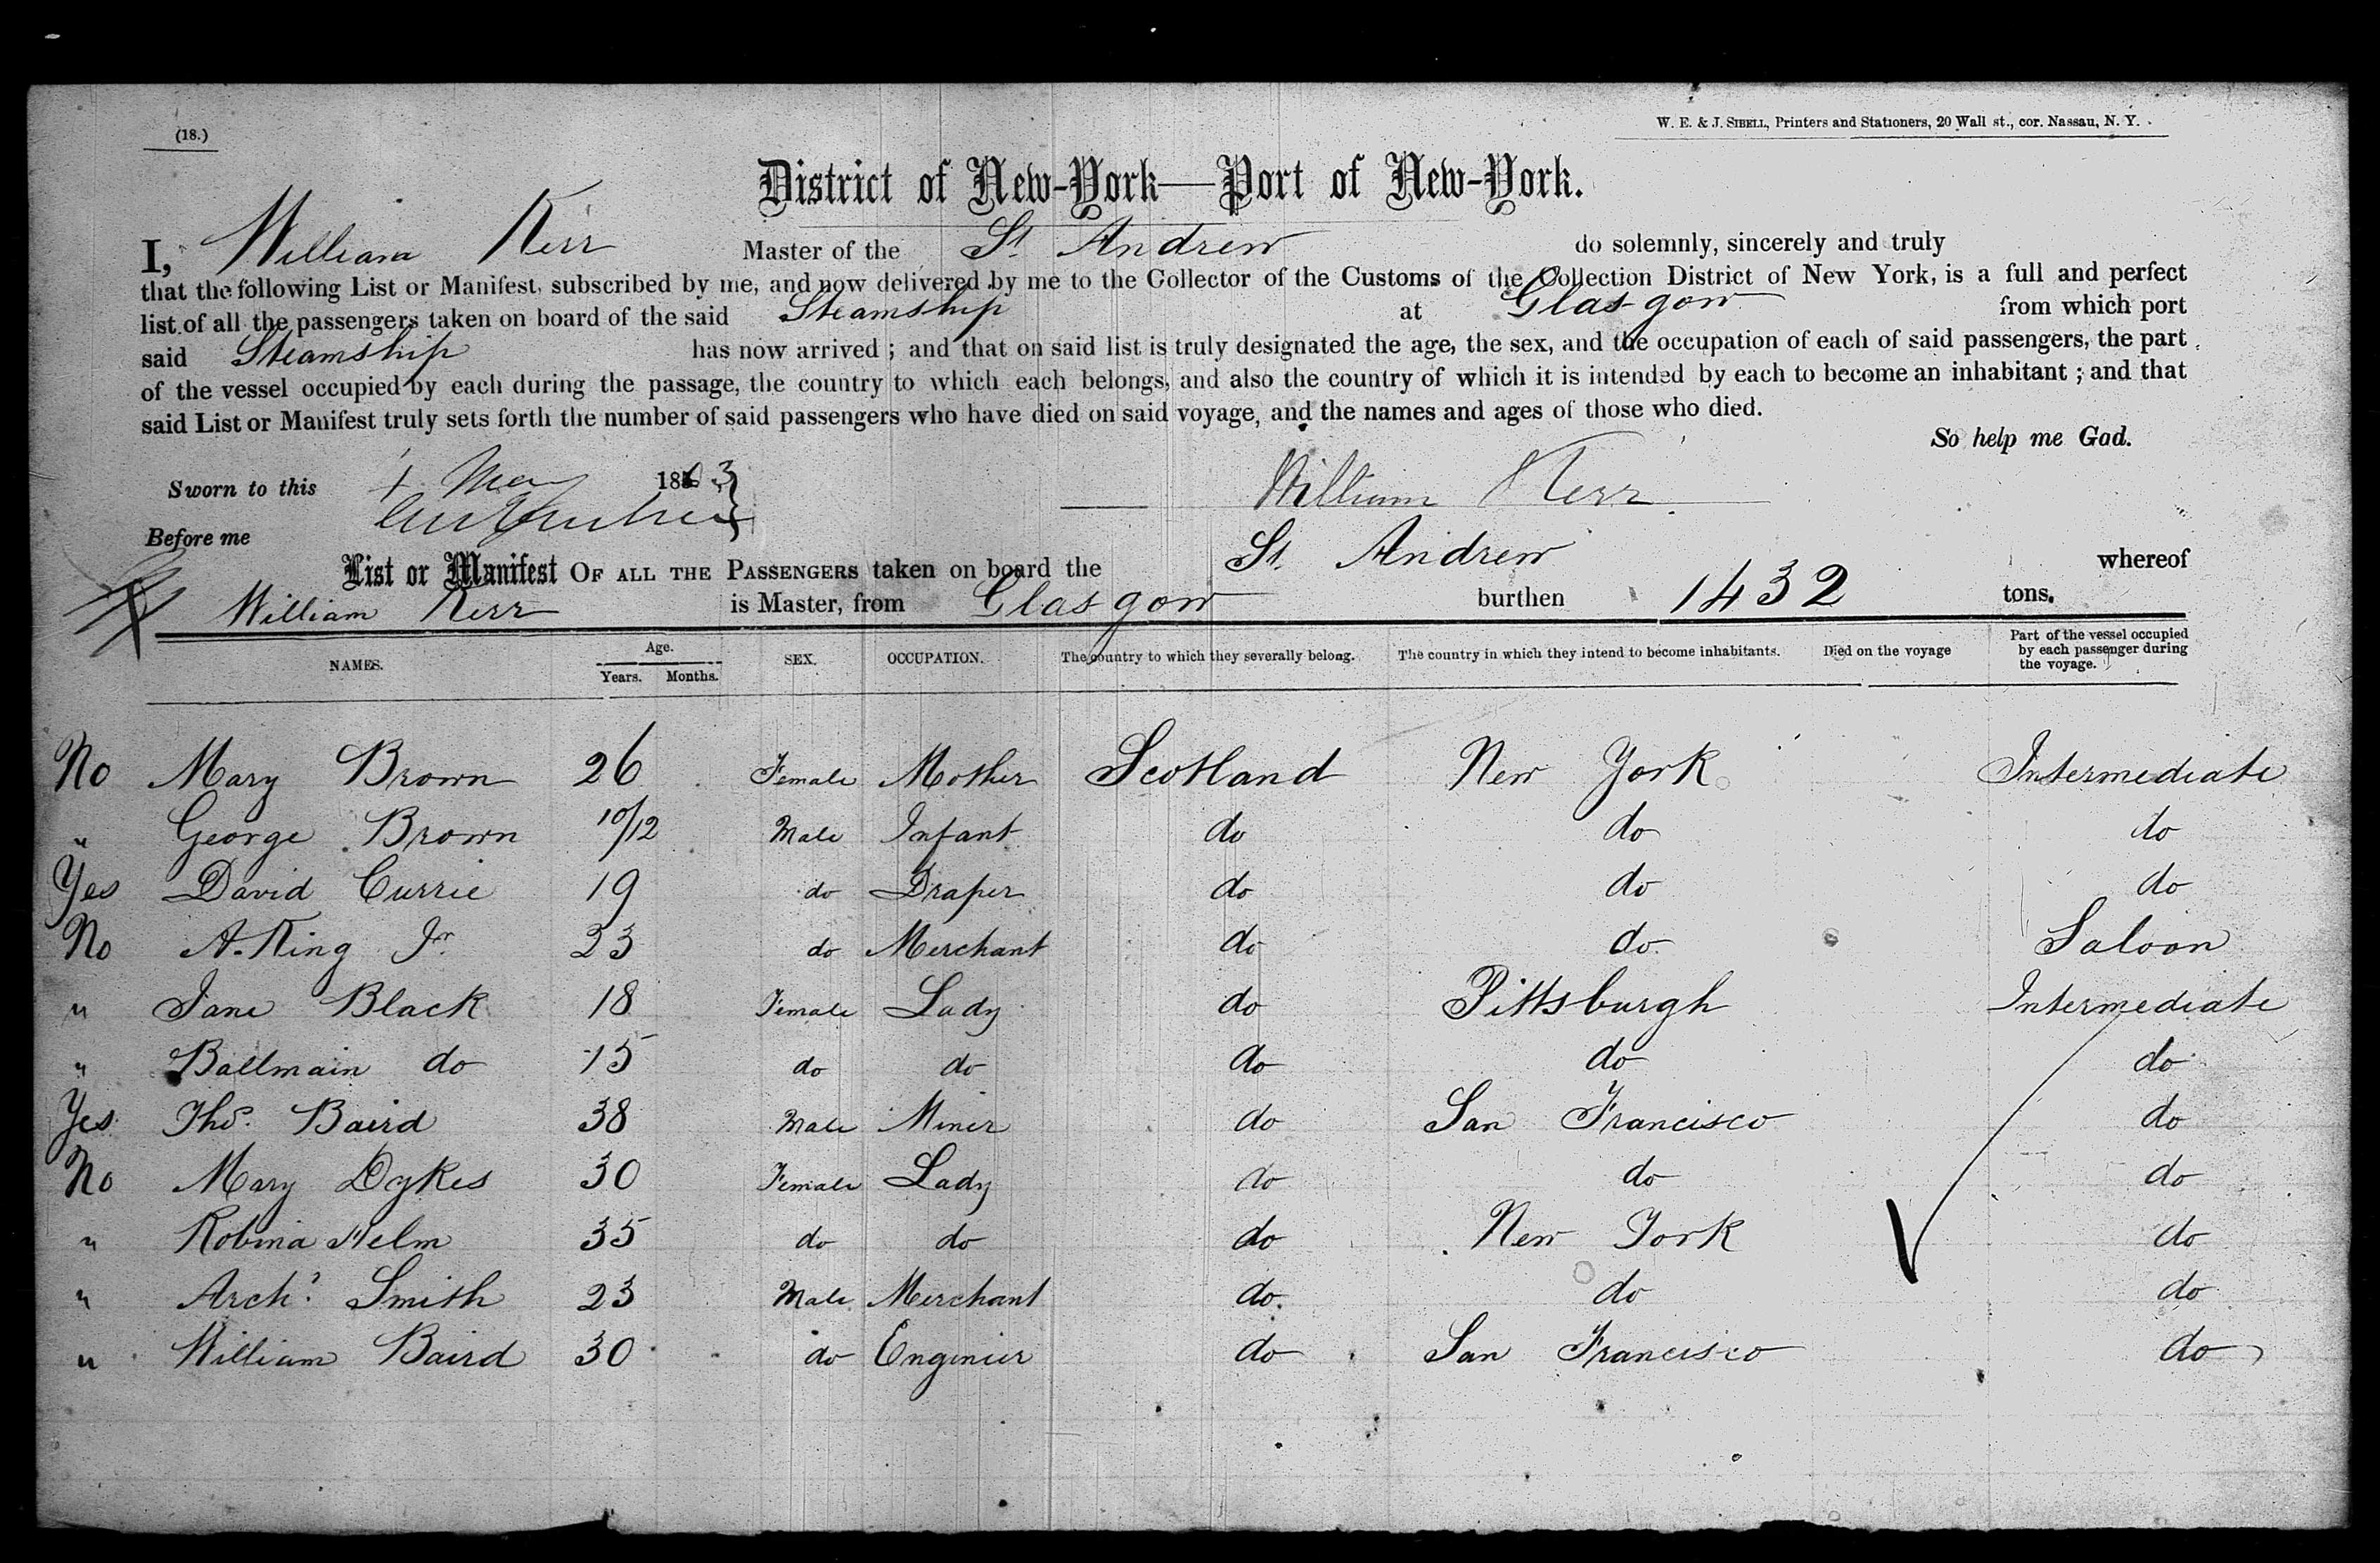 (18.)
W. E. & J. SIBELL, Printers and Stationers, 20 Wall st., cor. Nassau, N. Y.
District of New-York—Port of New-York.
I, William Kerr Master of the St. Andrew do solemnly, sincerely and truly
that the following List or Manifest, subscribed by me, and now delivered by me to the Collector of the Customs of the Collection District of New York, is a full and perfect
list of all the passengers taken on board of the said Steamship at Glasgow from which port
said Steamship has now arrived ; and that on said list is truly designated the age, the sex, and the occupation of each of said passengers, the part
of the vessel occupied by each during the passage, the country to which each belongs, and also the country of which it is intended by each to become an inhabitant ; and that
said List or Manifest truly sets forth the number of said passengers who have died on said voyage, and the names and ages of those who died.
So help me God.
Sworn to this May 1863 William Kerr
Before me
List or Manifest OF ALL THE PASSENGERS taken on board the St. Andrew whereof
William Kerr is Master, from Glasgow burthen 1432 tons.
NAMES. Age. Years. Months. SEX. OCCUPATION. The country to which they severally belong. The country in which they intend to become inhabitants. Died on the voyage Part of the vessel occupied by each passenger during the voyage.
No Mary Brown 26 Female Mother Scotland New York Intermediate
" George Brown 10/12 Male Infant do do do
Yes David Currie 19 do Draper do do do
No A. King Jr 23 do Merchant do do Saloon
" Jane Black 18 Female Lady do Pittsburgh Intermediate
" Ballmain do 15 do do do do do
Yes Thos. Baird 38 Male Miner do San Francisco do
No Mary Dykes 30 Female Lady do do do
" Robina Helm 35 do do do New York do
" Archd. Smith 23 Male Merchant do do do
" William Baird 30 do Enginier do San Francisco do